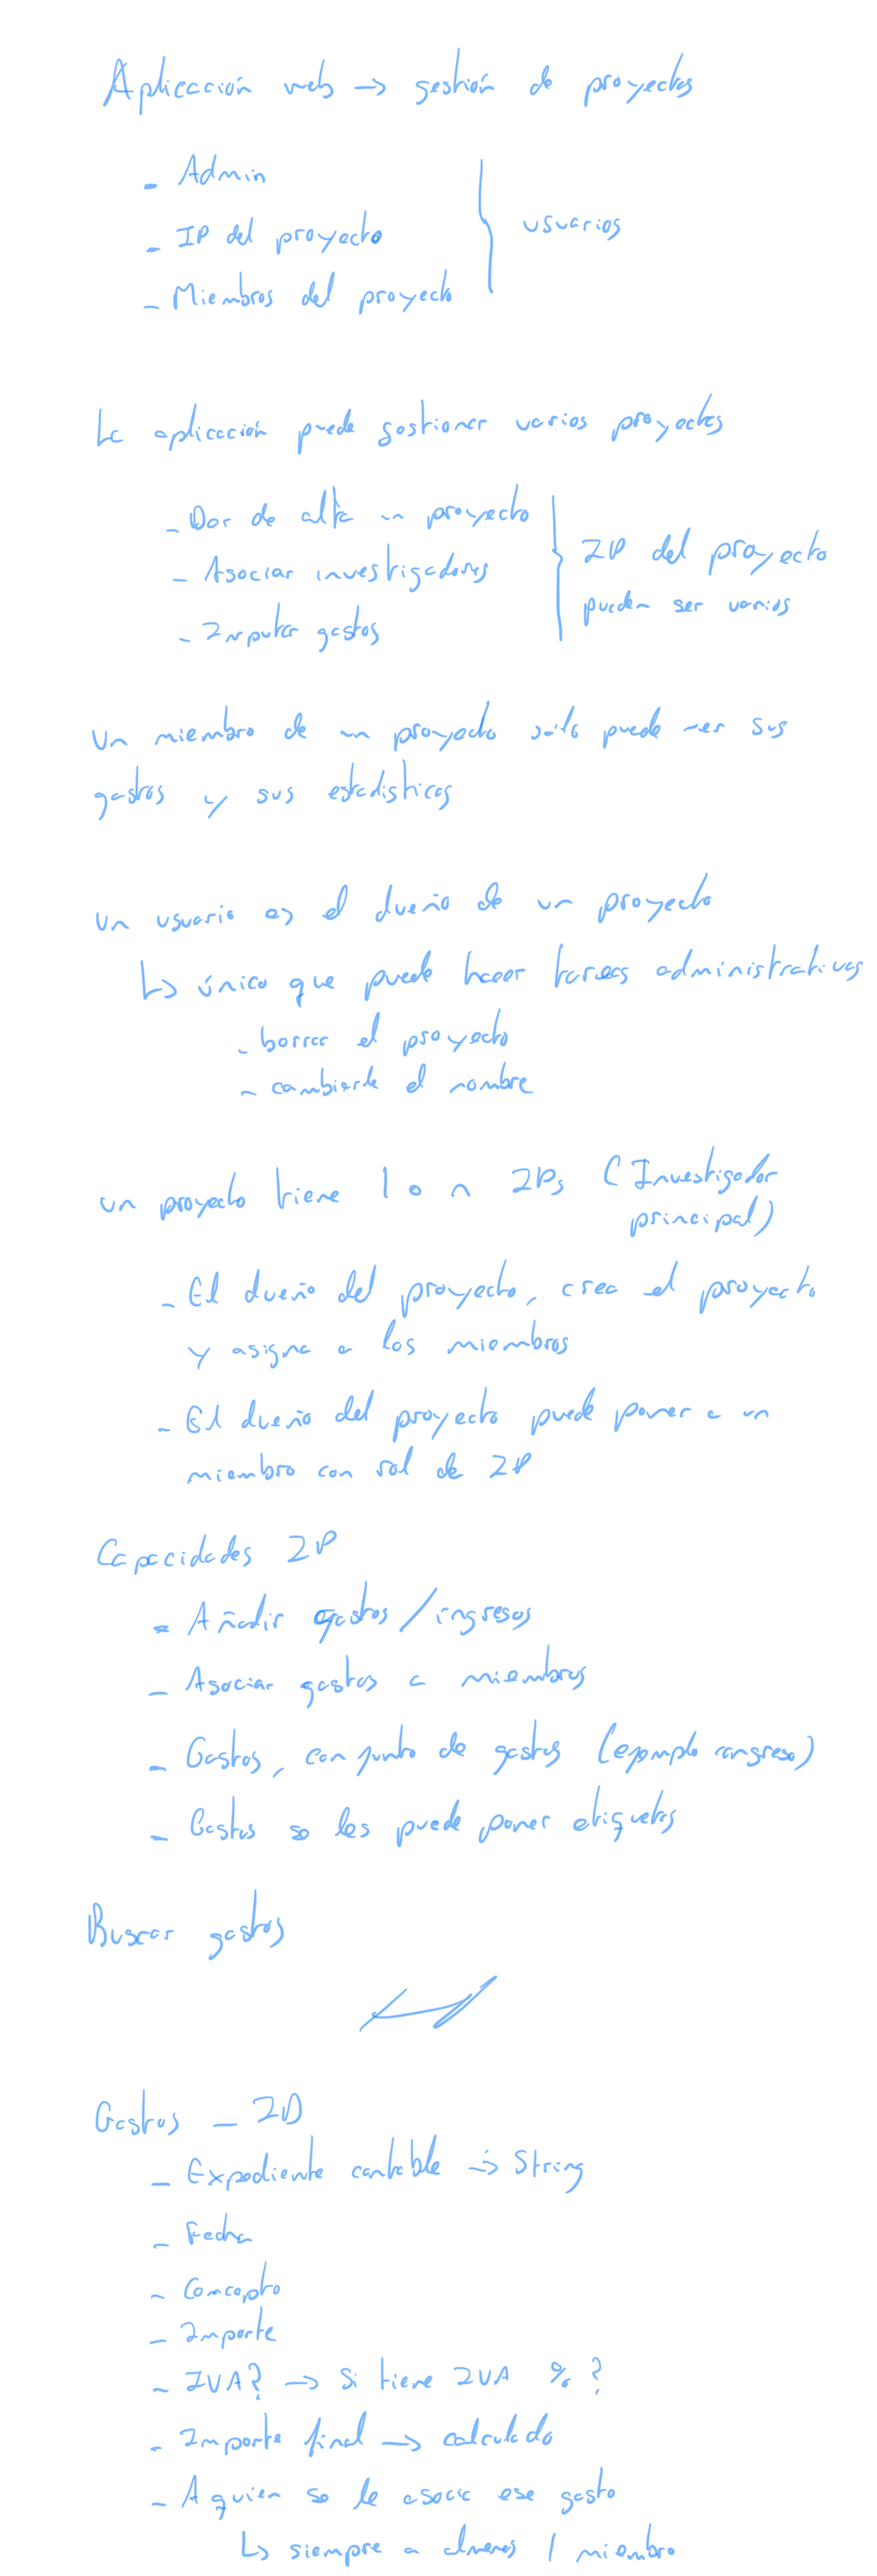 Aplicación web → gestión de proyectos
- Admin
- IP del proyecto
- Miembros del proyecto
usuarios
La aplicación puede gestionar varios proyectos
- Dar de alta un proyecto
- Asociar investigadores
- Imputar gastos
IP del proyecto
pueden ser varios
Un miembro de un proyecto sólo puede ver sus
gastos y sus estadísticas
Un usuario es el dueño de un proyecto
↳ único que puede hacer tareas administrativas
- borrar el proyecto
- cambiarle el nombre
un proyecto tiene 1 o n IPs (Investigador
principal)
- El dueño del proyecto, crea el proyecto
y asigna a los miembros
- El dueño del proyecto puede poner a un
miembro con rol de IP
Capacidades IP
- Añadir gastos/ingresos
- Asociar gastos a miembros
- Gastos, conjunto de gastos (ejemplo congreso)
- Gastos se les puede poner etiquetas
Buscar gastos
Gastos - ID
- Expediente contable → String
- Fecha
- Concepto
- Importe
- IVA? → Si tiene IVA % ?
- Importe final → calculado
- A quien se le asocia ese gasto
↳ siempre a almenos 1 miembro